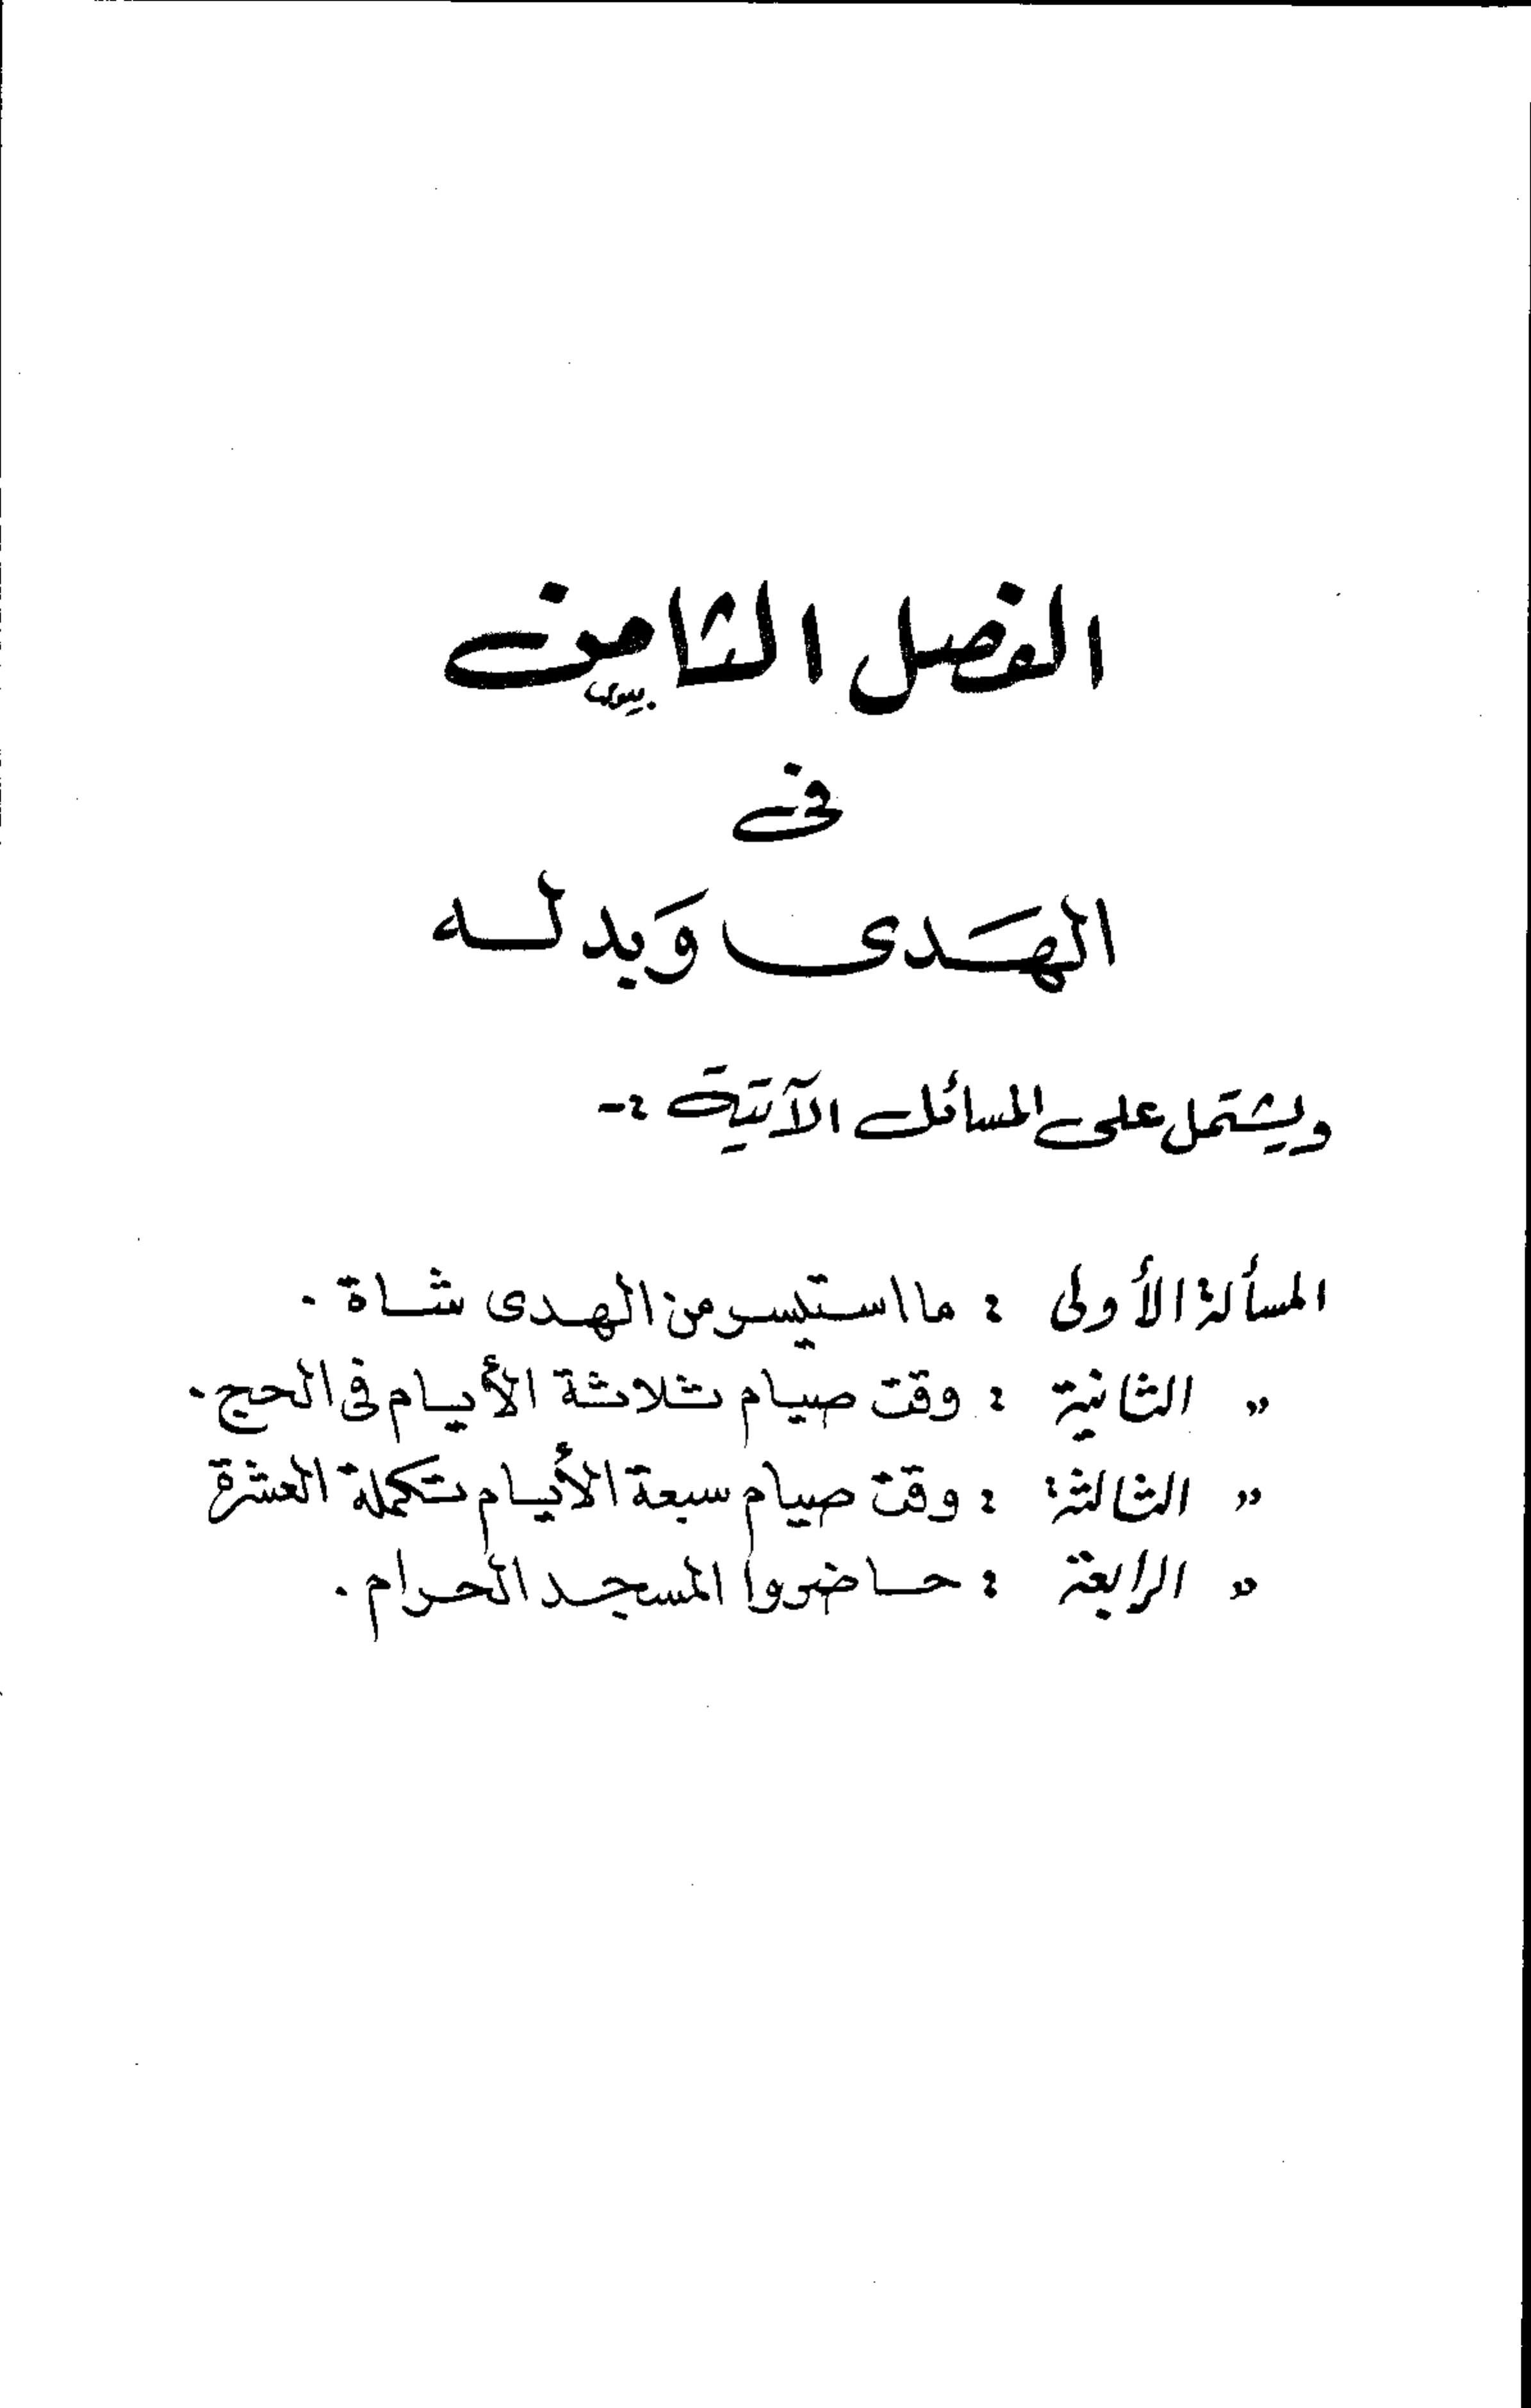 الفصل الثامن
فى
الهَدى وَبدله
ويشتمل على المسائل الآتية :-
المسألة الأولى : ما استيسر من الهدى شاة .
" الثانية : وقت صيام ثلاثة الأيام فى الحج .
" الثالثة : وقت صيام سبعة الأيام تكملة العشرة
" الرابعة : حاضروا المسجد الحرام .